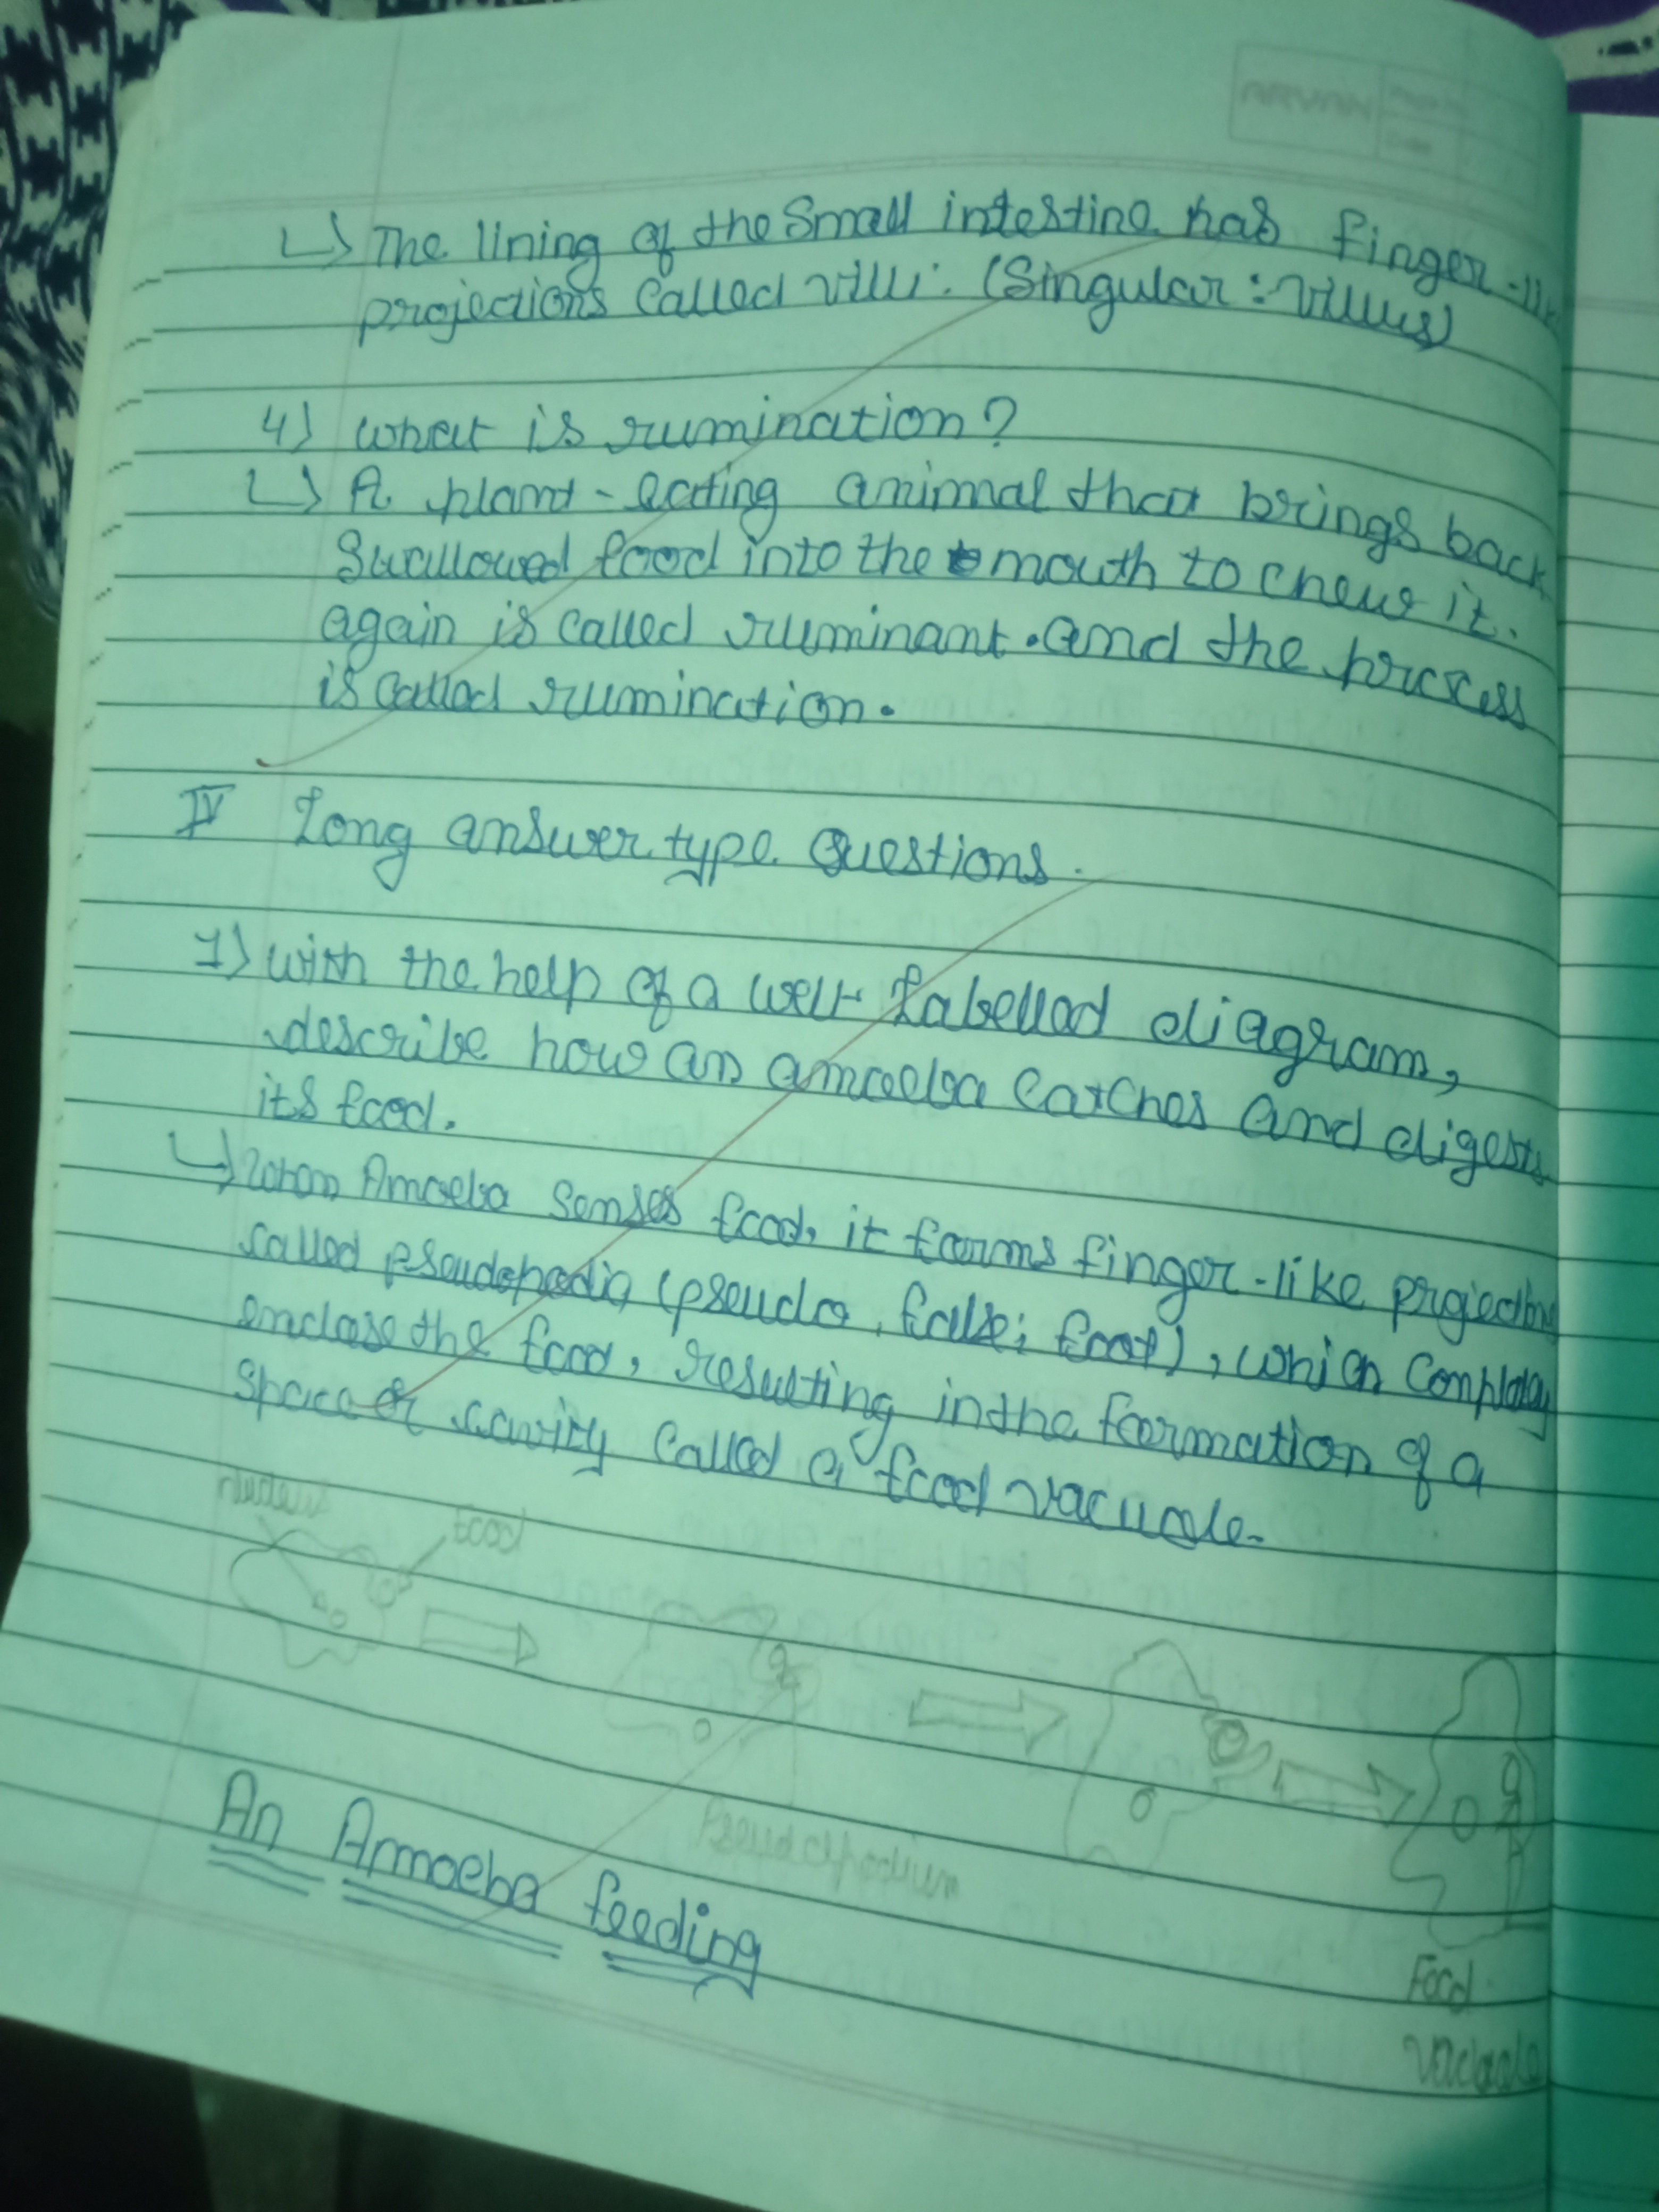 ↳ The lining of the Small intestine has finger-li
projections Called villi. (Singular : villus)
4) what is rumination?
↳ A plant-eating animal that brings back
Swallowed food into the mouth to chew it.
again is called ruminant. and the process
is called rumination.
IV Long answer type Questions.
1) with the help of a well Labelled diagram,
describe how an amoeba Catches and digests
its food.
↳ When Amoeba Senses food, it forms finger-like projections
called pseudopodia (pseudo, false; foot), which Completely
enclose the food, resulting in the formation of a
Space or cavity called a food vacuole.
Nucleus
Food
Pseudopodium
Food
Vacuole
An Amoeba feeding